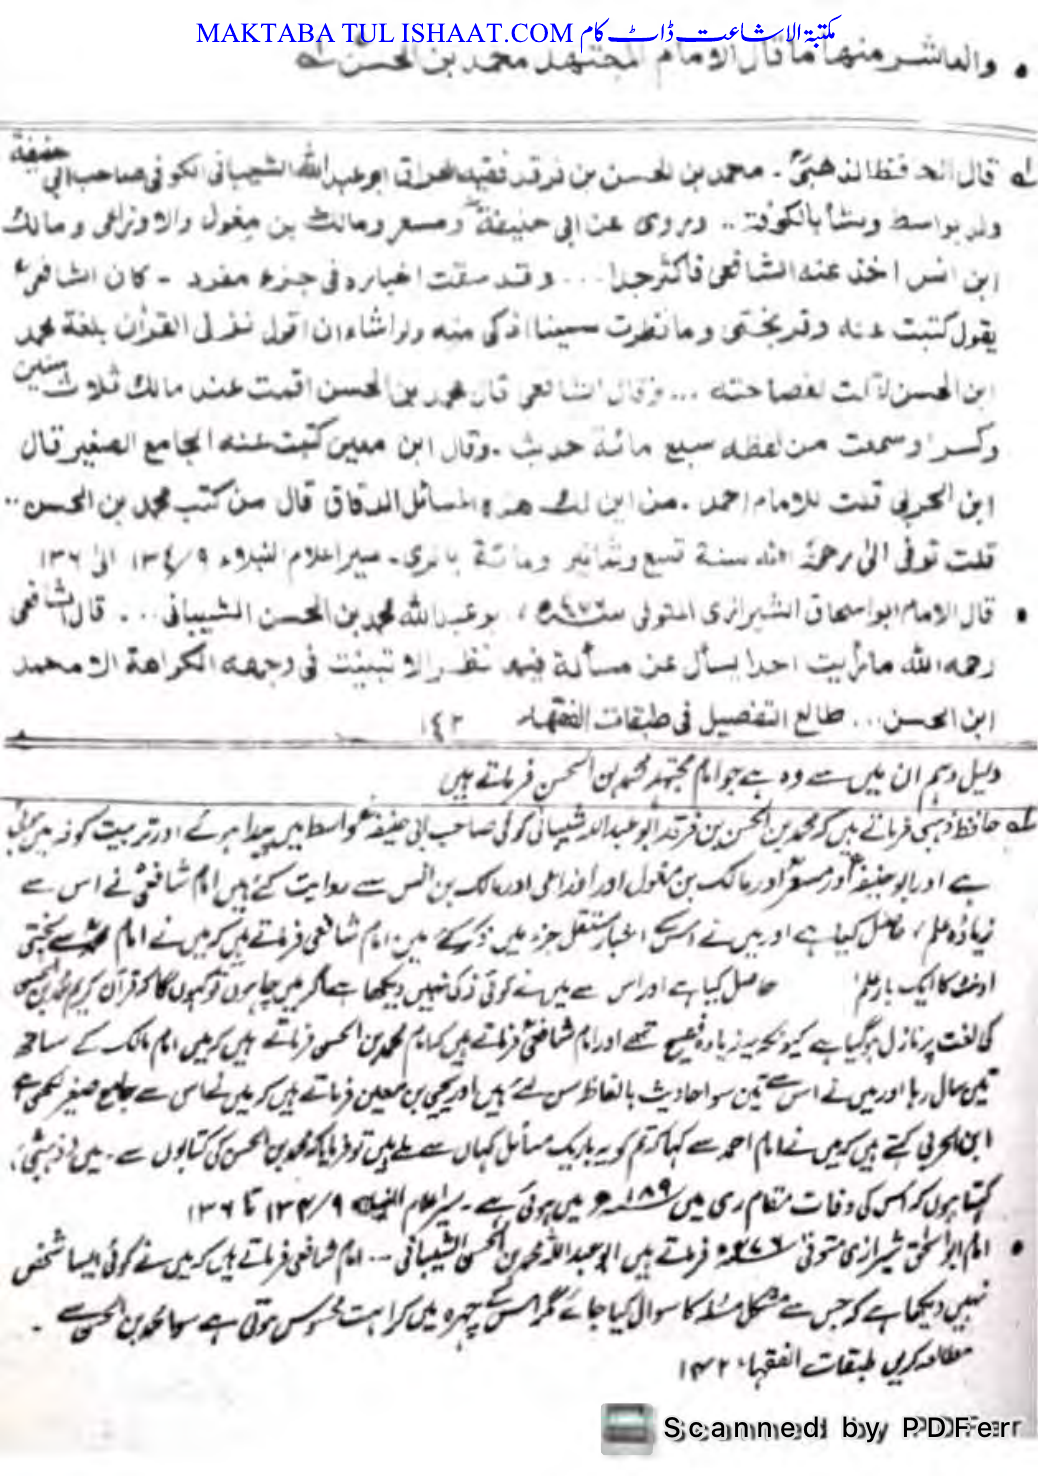 MAKTABA TUL ISHAAT.COM مکتبۃ الاشاعت ڈاٹ کام
• والعاشر منها ما قال الامام المجتهد محمد بن الحسن لہ
لہ قال الحافظ الذهبیؒ. محمد بن الحسن بن فرقد فقیه العراق ابو عبد اللہ الشیبانی الکوفی صاحب ابی حنیفة
ولد بواسط ونشأ بالکوفة .. ویروی عن ابی حنیفةؒ ومسعر ومالک بن مغول والاوزاعی ومالک
ابن انس اخذ عنه الشافعی فاکثر جدا ... وقد سقت اخباره فی جزء مفرد - کان الشافعیؒ
یقول کتبت عنه وقر بختی وما نظرت سمینا اذکی منه ولو اشاء ان اقول نزل القرآن بلغة محمد
ابن الحسن لقلت لفصاحته ... وقال الشافعی قال محمد بن الحسن اقمت عند مالک ثلاث سنین
وکسرا وسمعت من لفظه سبع مائة حدیث. وقال ابن معین کتبت عنه الجامع الصغیر قال
ابن الحربی قلت للامام احمد. من این لک هذه المسائل الدقاق قال من کتب محمد بن الحسن ..
قلت توفی الی رحمة اللہ سنة تسع وثمانین ومائة بالری - سیر اعلام النبلاء ۹/۱۳٤ الی ۱۳۶
• قال الامام ابو اسحاق الشیرازی المتوفی سنہ ۴۷۶ھ، ابو عبد اللہ محمد بن الحسن الشیبانی ... قال الشافعی
رحمه اللہ ما رأیت احدا یسأل عن مسألة فیها نظر الا تبینت فی وجهه الکراهة الا محمد
ابن الحسن ... طالع التفصیل فی طبقات الفقهاء ۱٤۲
دلیل دہم ان میں سے وہ ہے جو امام مجتہد محمد بن الحسن فرماتے ہیں
لہ حافظ ذہبی فرماتے ہیں کہ محمد بن الحسن بن فرقد ابو عبد اللہ شیبانی کوفی صاحب ابی حنیفہؒ واسط میں پیدا ہوئے اور تربیت کوفہ میں ہوئی
ہے اور ابو حنیفہؒ اور مسعرؒ اور مالک بن مغول اور اوزاعی اور مالک بن انس سے روایت کئے ہیں امام شافعیؒ نے اس سے
زیادہ علم حاصل کیا ہے اور میں نے اسکے اخبار مستقل جزء میں ذکر کئے ہیں، امام شافعی فرماتے ہیں کہ میں نے امام محمدؒ سے بختی
اونٹ کا ایک بار علم حاصل کیا ہے اور اس سے میں نے کوئی ذکی نہیں دیکھا ہے اگر میں چاہوں تو کہوں گا کہ قرآن کریم محمد بن الحسن
کی لغت پر نازل ہو گیا ہے کیونکہ یہ زیادہ فصیح تھے اور امام شافعیؒ فرماتے ہیں کہ امام محمد بن الحسن فرماتے ہیں کہ میں امام مالک کے ساتھ
تین سال رہا اور میں نے اس سے تین سو احادیث بالفاظ سن لئے ہیں اور یحیی بن معین فرماتے ہیں کہ میں نے اس سے جامع صغیر لکھی ہے
ابن الحربی کہتے ہیں کہ میں نے امام احمد سے کہا کہ تم کو یہ باریک مسائل کہاں سے ملے ہیں تو فرمایا کہ محمد بن الحسن کی کتابوں سے۔ میں (ذہبی)
کہتا ہوں کہ اس کی وفات مقام ری میں ۱۸۹ھ میں ہوئی ہے۔ سیر اعلام النبلاء ۹/۱۳۴ تا ۱۳۶
• امام ابو اسحٰق شیرازی متوفیٰ ۴۷۶ھ فرماتے ہیں ابو عبد اللہ محمد بن الحسن الشیبانی ... امام شافعی فرماتے ہیں کہ میں نے کوئی ایسا شخص
نہیں دیکھا ہے کہ جس سے مشکل مسئلہ کا سوال کیا جائے مگر اس کے چہرہ میں کراہت محسوس ہوتی ہے سوا محمد بن الحسن سے ۔
مطالعہ کریں طبقات الفقہاء ۱۴۲
Scanned by PDFer